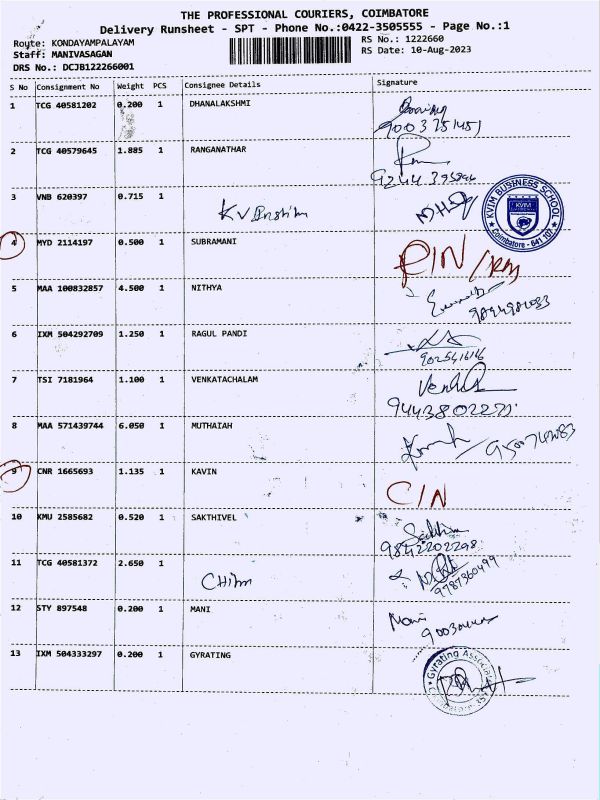 THE PROFESSIONAL COURIERS, COIMBATORE
Delivery Runsheet - SPT - Phone No.:0422-3505555 - Page No.:1
Royte: KONDAYAMPALAYAM RS No.: 1222660
Staff: MANIVASAGAN RS Date: 10-Aug-2023
DRS No.: DCJB122266001
S No Consignment No Weight PCS Consignee Details Signature
1 TCG 40581202 0.200 1 DHANALAKSHMI
9003251451
2 TCG 40579645 1.885 1 RANGANATHAR
9244395896
3 VNB 620397 0.715 1
KVIM BUSINESS SCHOOL
KVIM
Coimbatore - 641 107
4 MYD 2114197 0.500 1 SUBRAMANI
5 MAA 100832857 4.500 1 NITHYA
6 IXM 504292709 1.250 1 RAGUL PANDI
7 TSI 7181964 1.100 1 VENKATACHALAM
8 MAA 571439744 6.050 1 MUTHAIAH
9 CNR 1665693 1.135 1 KAVIN
C/N
10 KMU 2585682 0.520 1 SAKTHIVEL
Sakthi
9842202298
11 TCG 40581372 2.650 1
9787360499
12 STY 897548 0.200 1 MANI
Mani
13 IXM 504333297 0.200 1 GYRATING
Gyrating Associat